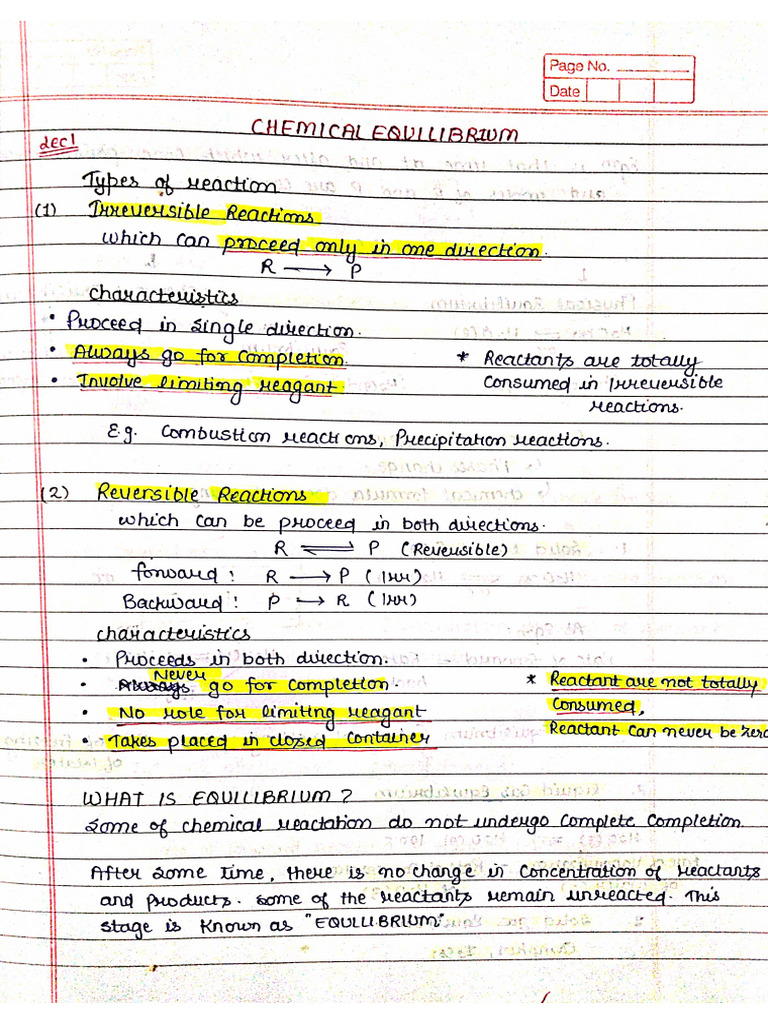 Page No.
Date
CHEMICAL EQUILIBRIUM
Lec 1
Types of reaction
(1) Irreversible Reactions
which can proceed only in one direction.
R ⟶ P
Characteristics
• Proceed in single direction.
• Always go for completion.
* Reactants are totally
• Involve limiting reagant.
consumed in Irreversible
reactions.
E.g. Combustion reactions, Precipitation reactions.
(2) Reversible Reactions
which can be proceed in both directions.
R ⇌ P (Reversible)
forward : R ⟶ P (Irr)
Backward : P ⟶ R (Irr)
Characteristics
• Proceeds in both direction.
Never
• Always go for completion.
* Reactant are not totally
• No role for limiting reagant
Consumed,
Reactant can never be zero
• Takes placed in closed container
WHAT IS EQUILIBRIUM?
Some of chemical reactation do not undergo complete completion.
After some time, there is no change in concentration of reactants
and products. Some of the reactants remain unreacted. This
stage is known as "EQUILIBRIUM"